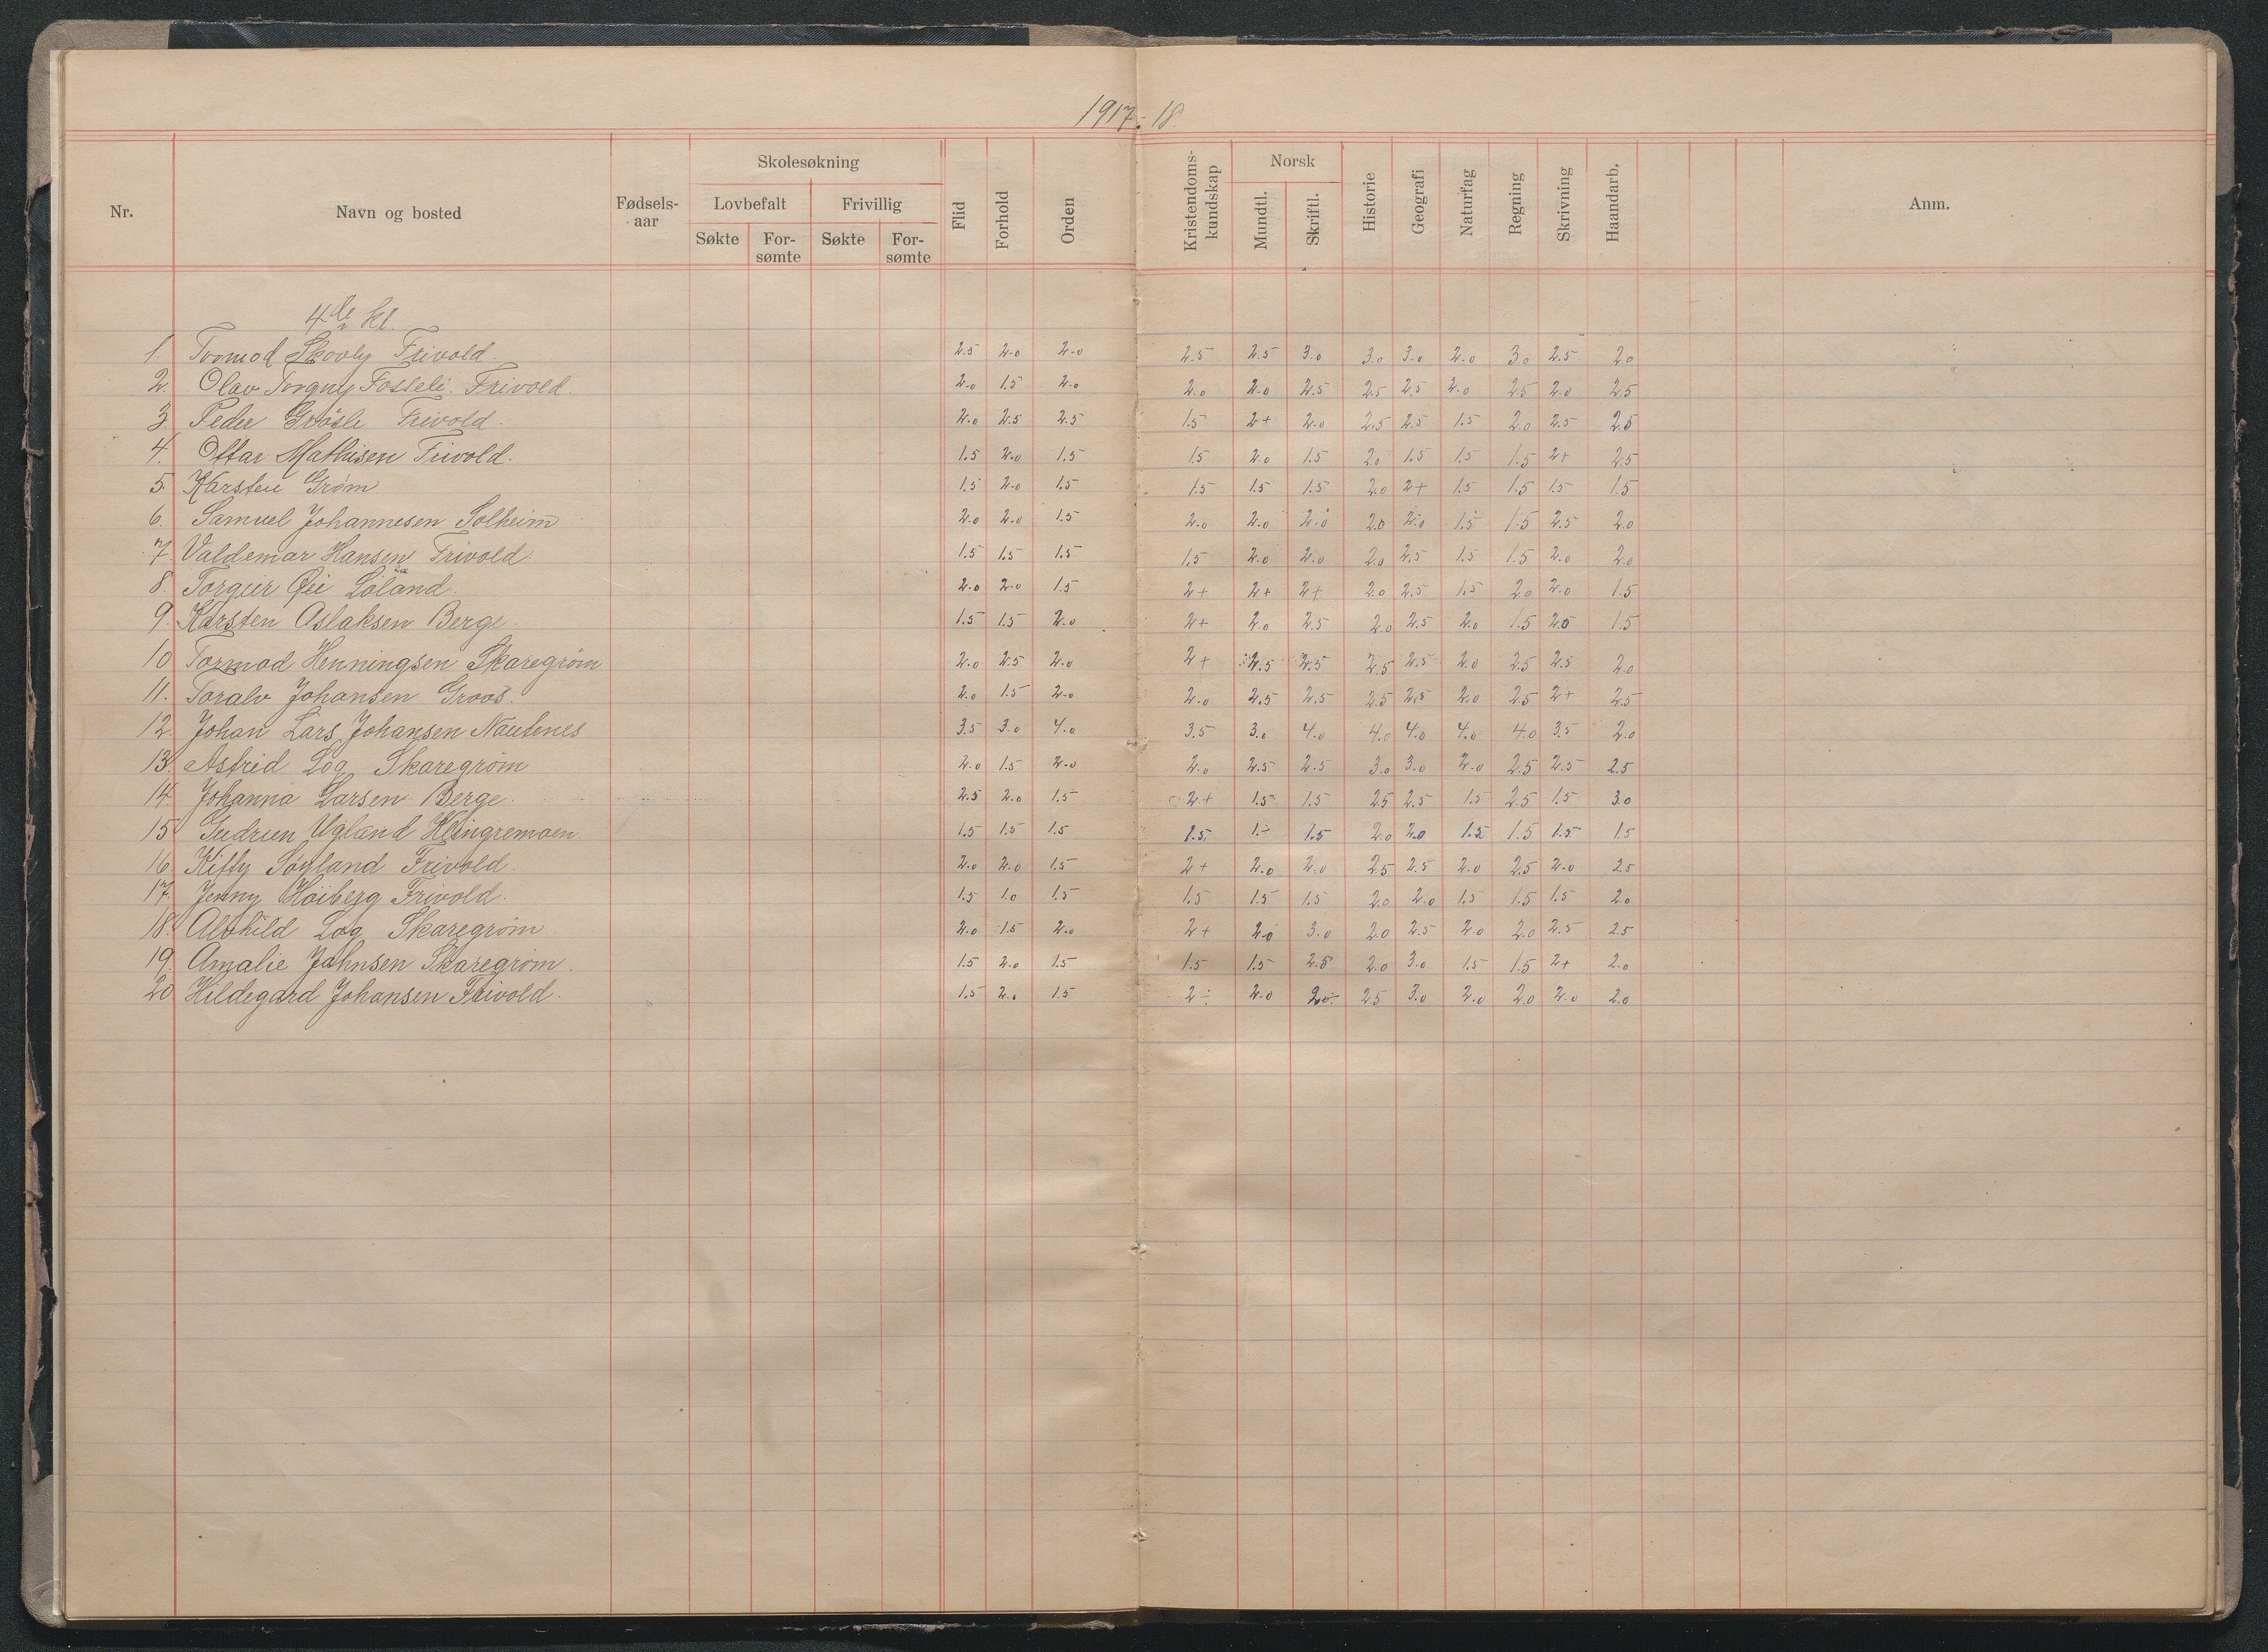 1917-18
Nr. Navn og bosted Fødsels-aar Skolesøkning Lovbefalt Søkte For-sømte Frivillig Søkte For-sømte Flid Forhold Orden Kristendoms-kundskap Norsk Mundtl. Skriftl. Historie Geografi Naturfag Regning Skrivning Haandarb. Anm.
4de kl.
1. Tormod Skovly Frivold. 2.5 2.0 2.0 2.5 2.5 3.0 3.0 3.0 2.0 3.0 2.5 2.0
2. Olav Torgny Fosseli. Frivold. 2.0 1.5 2.0 2.0 2.0 2.5 2.5 2.5 2.0 2.5 2.0 2.5
3. Peder Grøsle Frivold. 2.0 2.5 2.5 1.5 2+ 2.0 2.5 2.5 1.5 2.0 2.5 2.5
4. Ottar Mathisen Frivold. 1.5 2.0 1.5 1.5 2.0 1.5 2.0 1.5 1.5 1.5 2+ 2.5
5. Karsten Grøm 1.5 2.0 1.5 1.5 1.5 1.5 2.0 2+ 1.5 1.5 1.5 1.5
6. Samuel Johannesen Solheim 2.0 2.0 1.5 2.0 2.0 2.0 2.0 2.0 1.5 1.5 2.5 2.0
7. Valdemar Hansen Frivold. 1.5 1.5 1.5 1.5 2.0 2.0 2.0 2.5 1.5 1.5 2.0 2.0
8. Torgeir Øei Løland. 2.0 2.0 1.5 2+ 2+ 2+ 2.0 2.5 1.5 2.0 2.0 1.5
9. Karsten Aslaksen Berge. 1.5 1.5 2.0 2+ 2.0 2.5 2.0 2.5 2.0 1.5 2.0 1.5
10 Tormod Henningsen Skaregrøm 2.0 2.5 2.0 2+ 2.5 2.5 2.5 2.5 2.0 2.5 2.5 2.0
11. Toralv Johansen Groos. 2.0 1.5 2.0 2.0 2.5 2.5 2.5 2.5 2.0 2.5 2+ 2.5
12. Johan Lars Johansen Nautenes 3.5 3.0 4.0 3.5 3.0 4.0 4.0 4.0 4.0 4.0 3.5 2.0
13. Astrid Log Skaregrøm 2.0 1.5 2.0 2.0 2.5 2.5 3.0 3.0 2.0 2.5 2.5 2.5
14. Johanna Larsen Berge. 2.5 2.0 1.5 2+ 1.5 1.5 2.5 2.5 1.5 2.5 1.5 3.0
15 Gudrun Ugland Klingremoen 1.5 1.5 1.5 1.5 1÷ 1.5 2.0 2.0 1.5 1.5 1.5 1.5
16. Kitty Søyland Frivold. 2.0 2.0 1.5 2+ 2.0 2.0 2.5 2.5 2.0 2.5 2.0 2.5
17. Jenny Høiberg Frivold. 1.5 1.0 1.5 1.5 1.5 1.5 2.0 2.0 1.5 1.5 1.5 2.0
18. Alvhild Log Skaregrøm 2.0 1.5 2.0 2+ 2.0 3.0 2.0 2.5 2.0 2.0 2.5 2.5
19. Amalie Johnsen Skaregrøm. 1.5 2.0 1.5 1.5 1.5 2.5 2.0 3.0 1.5 1.5 2+ 2.0
20 Hildegard Johansen Frivold. 1.5 2.0 1.5 2÷ 2.0 2.0÷ 2.5 3.0 2.0 2.0 2.0 2.0